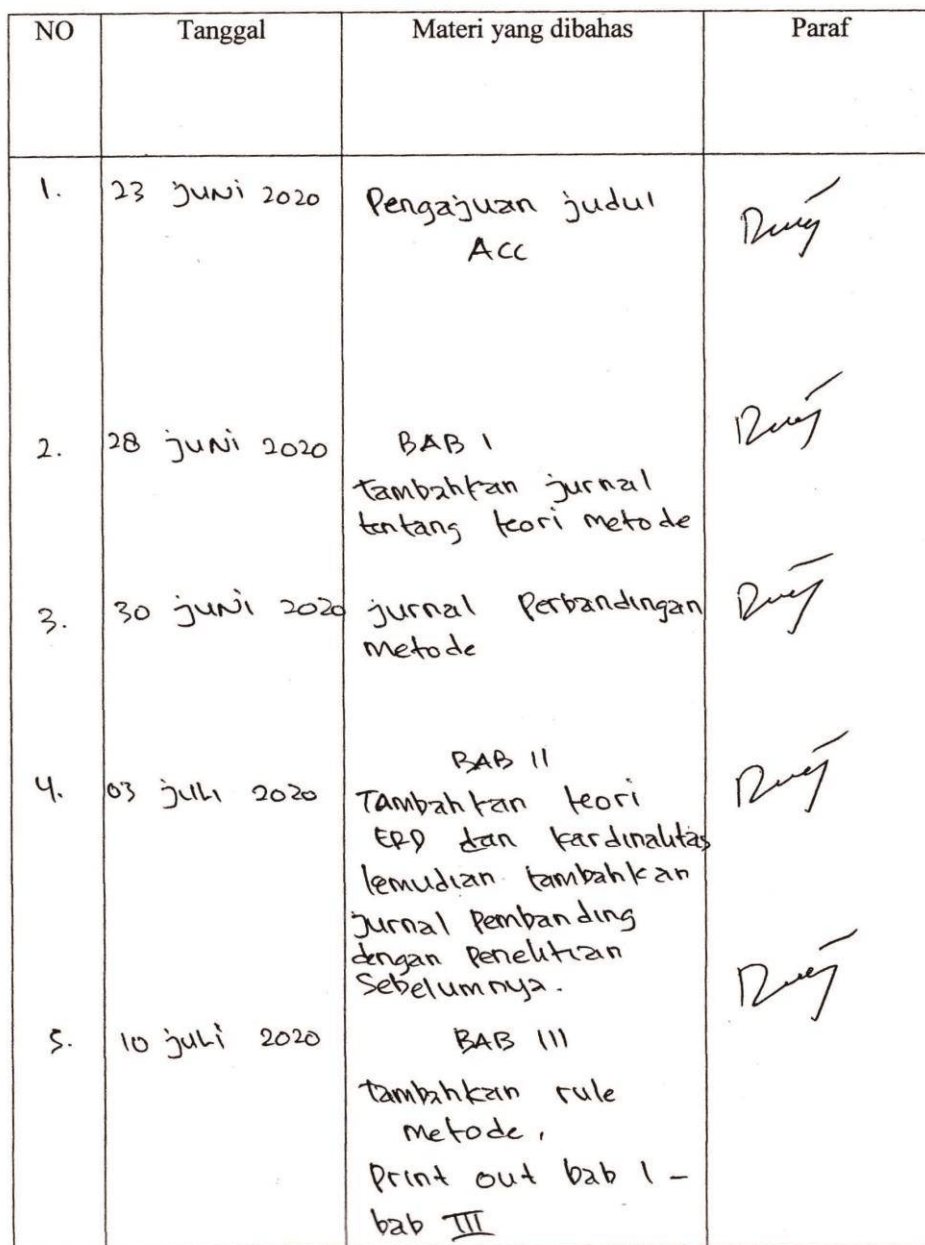 NO Tanggal Materi yang dibahas Paraf
1. 23 juni 2020 Pengajuan judul
Acc
2. 28 juni 2020 BAB I
tambahkan jurnal
tentang teori metode
3. 30 juni 2020 jurnal Perbandingan
metode
BAB II
4. 03 juli 2020 Tambahkan teori
ERD dan kardinalitas
kemudian tambahkan
jurnal Pembanding
dengan Penelitian
Sebelumnya.
5. 10 juli 2020 BAB III
tambahkan rule
metode,
Print out bab I -
bab III